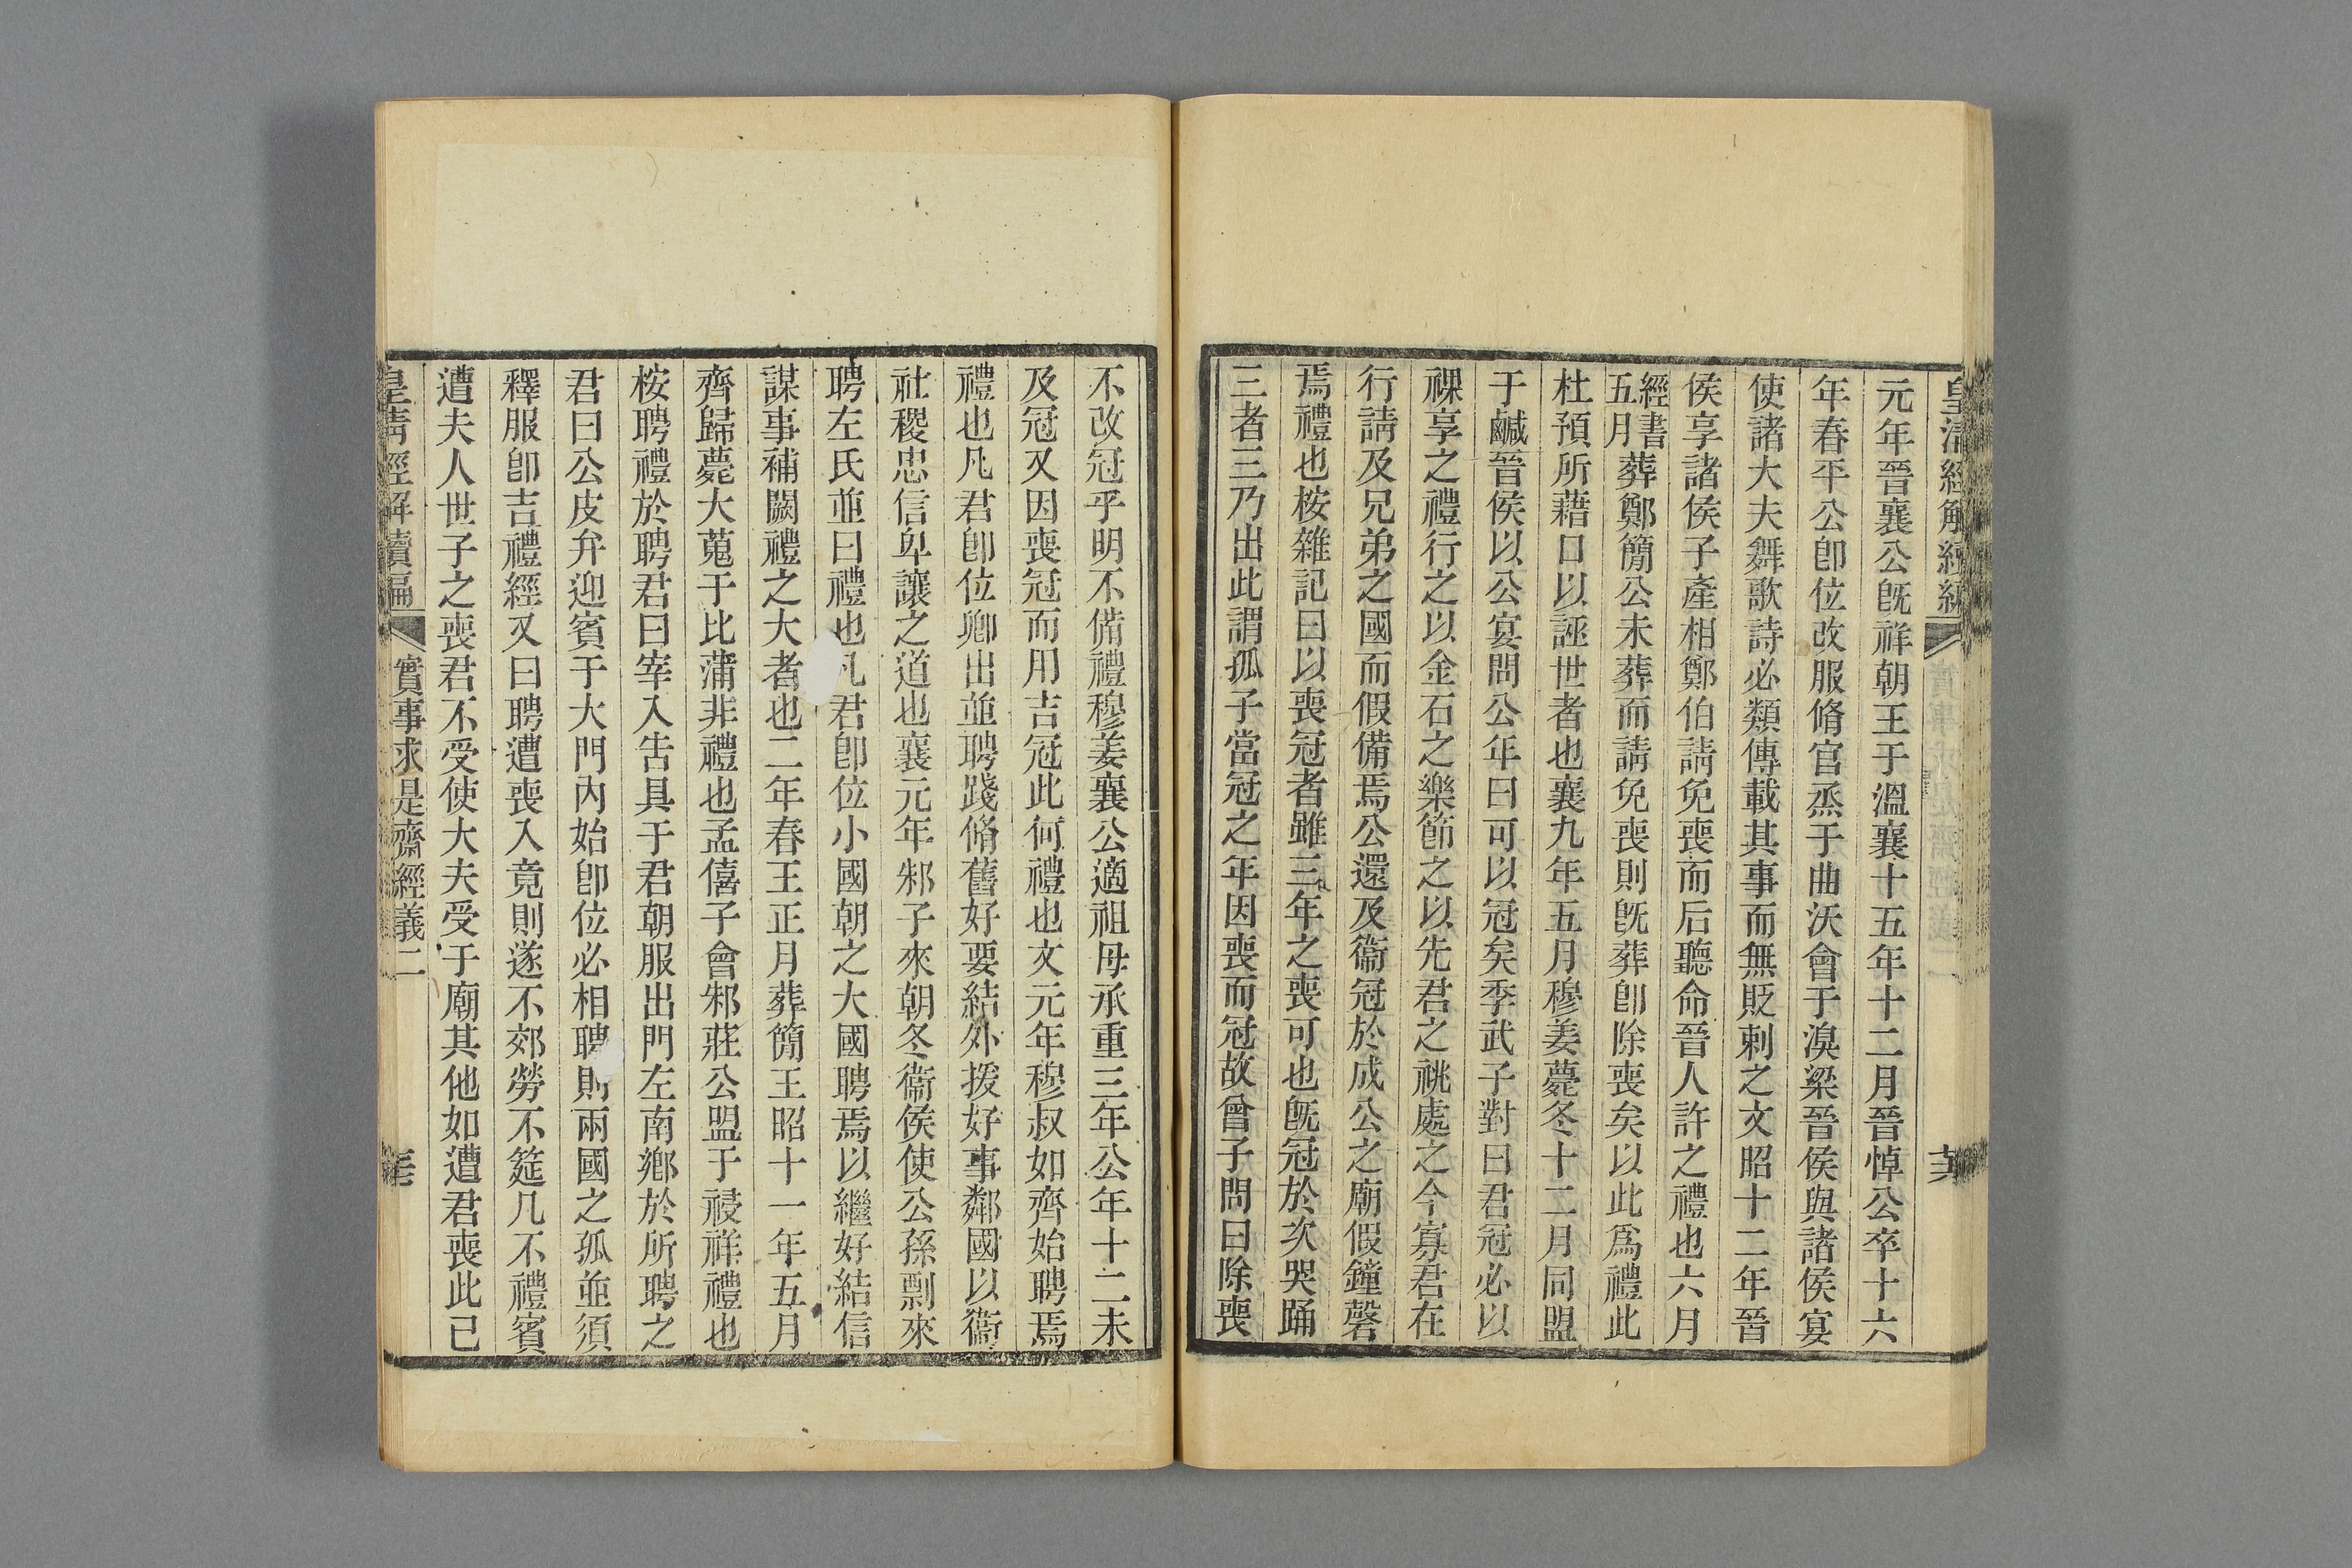 元年晉襄公旣祥朝王于溫襄十五年十二月晉悼公卒十六
年春平公卽位改服脩官烝于曲沃會于溴梁晉侯與諸侯宴
使諸大夫舞歌詩必類傳載其事而無貶刺之文昭十二年晉
侯享諸侯子產相鄭伯請免喪而后聽命晉人許之禮也六月
經書五月葬鄭簡公未葬而請免喪則旣葬卽除喪矣以此爲禮此
杜預所藉口以誣世者也襄九年五月穆姜薨冬十二月同盟
于鹹晉侯以公宴問公年曰可以冠矣季武子對曰君冠必以
祼享之禮行之以金石之樂節之以先君之祧處之今寡君在
行請及兄弟之國而假備焉公還及衞冠於成公之廟假鐘磬
焉禮也桉雜記曰以喪冠者雖三年之喪可也旣冠於次哭踊
三者三乃出此謂孤子當冠之年因喪而冠故曾子問曰除喪
不改冠乎明不備禮穆姜襄公適祖母承重三年公年十二未
及冠又因喪冠而用吉冠此何禮也文元年穆叔如齊始聘焉
禮也凡君卽位卿出並聘踐脩舊好要結外援好事鄰國以衞
社稷忠信卑讓之道也襄元年邾子來朝冬衞侯使公孫剽來
聘左氏並曰禮也凡君卽位小國朝之大國聘焉以繼好結信
謀事補闕禮之大者也二年春王正月葬簡王昭十一年五月
齊歸薨大蒐于比蒲非禮也孟僖子會邾莊公盟于祲祥禮也
桉聘禮於聘君曰宰入告具于君朝服出門左南鄉於所聘之
君曰公皮弁迎賓于大門內始卽位必相聘則兩國之孤並須
釋服卽吉禮經又曰聘遭喪入竟則遂不郊勞不筵几不禮賓
遭夫人世子之喪君不受使大夫受于廟其他如遭君喪此已
皇淸經解續編
實事求是齋經義二